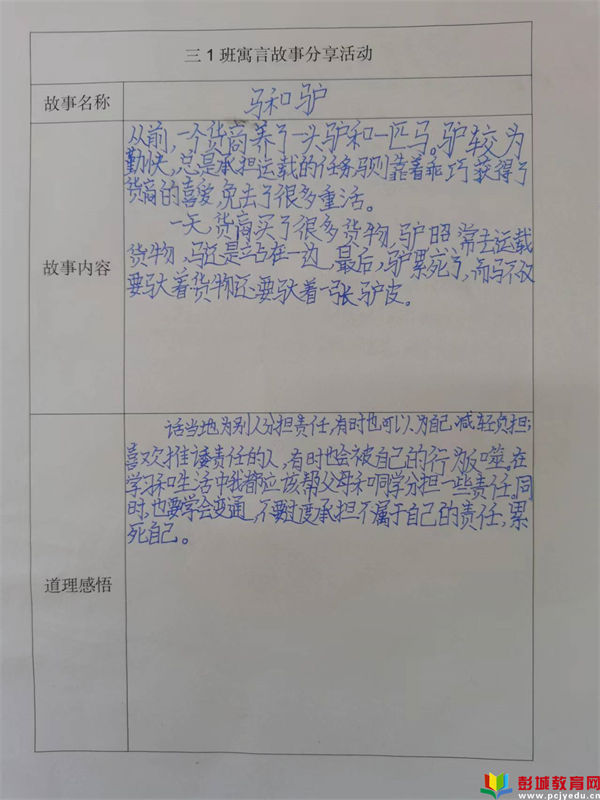 三1班寓言故事分享活动
故事名称
马和驴
故事内容
从前,一个货商养了一头驴和一匹马。驴较为
勤快,总是承担运载的任务,马则靠着乖巧获得了
货商的喜爱,免去了很多重活。
一天,货商买了很多货物,驴照常去运载
货物,马还是站在一边,最后,驴累死了,而马不仅
要驮着货物还要驮着一张驴皮。
道理感悟
适当地为别人分担责任,有时也可以为自己减轻负担;
喜欢推诿责任的人,有时也会被自己的行为反噬。在
学习和生活中我都应该帮父母和同学分担一些责任。同
时,也要学会变通,不要过度承担不属于自己的责任,累
死自己。
彭城教育网
www.pcjyedu.cn